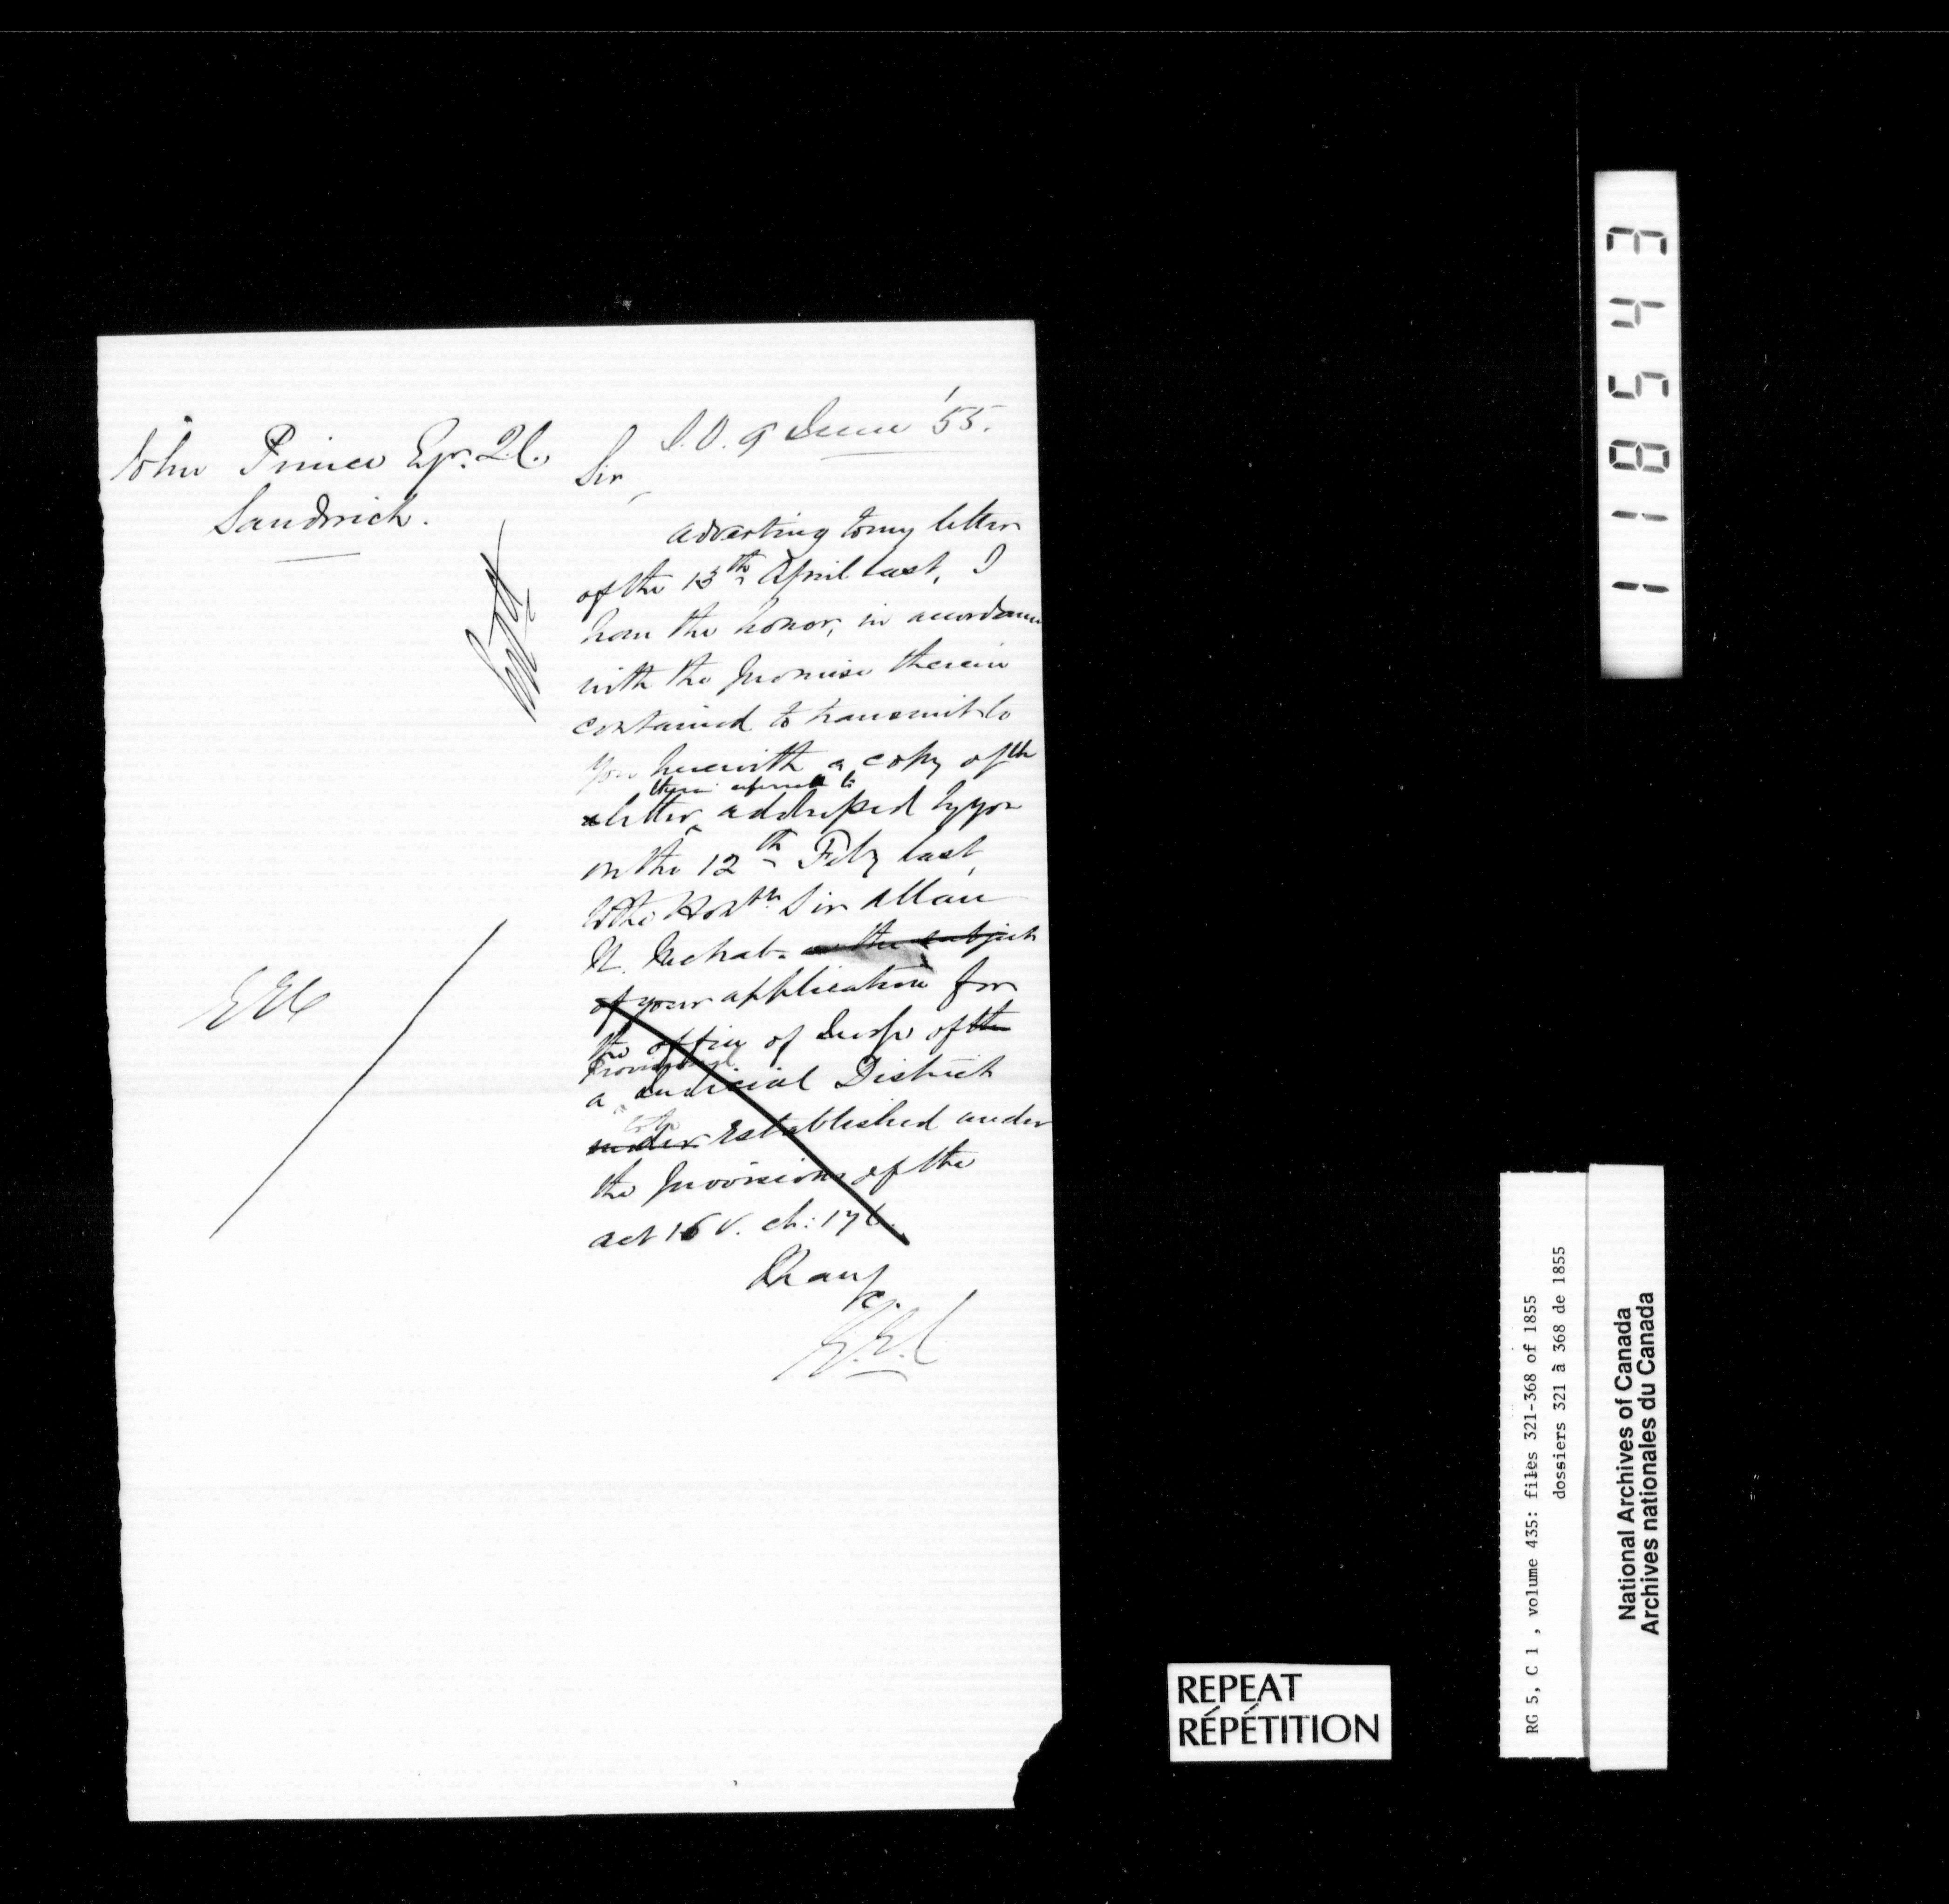 John Prince Esqr. Q.C.
Sandwich.
S.O. 9 June '55.
Sir,
adverting to my letter
of the 13th April last, I
have the honor, in accordance
with the promise therein
contained to transmit to
you herewith a copy of the
therein referred to
a letter addressed by you
on the 12th Feby last,
to the Honble Sir Allan
N. McNab. on the subject
of your application for
the office of Judge of the
Provisional
a Judicial District
to be
under established under
the provisions of the
act 16 V. ch: 176.
I have
&c.
G.E.C
REPEAT
RÉPÉTITION
118543
RG 5, C 1 , volume 435: files 321-368 of 1855
dossiers 321 à 368 de 1855
National Archives of Canada
Archives nationales du Canada